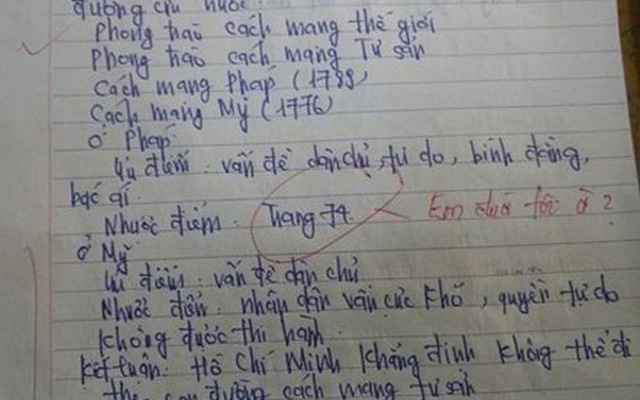 đường cứu nước.
Phong trào cách mạng thế giới
Phong trào cách mạng Tư sản
Cách mạng Pháp (1789)
Cách mạng Mỹ (1776)
Ở Pháp
Ưu điểm: vấn đề dân chủ, tự do, bình đẳng,
bác ái.
Nhược điểm: Trang 74. Em đùa tôi à?
Ở Mỹ
Ưu điểm: vấn đề dân chủ
Nhược điểm: nhân dân vẫn cực khổ, quyền tự do
không được thi hành
Kết luận: Hồ Chí Minh khẳng định không thể đi
con đường cách mạng tư sản